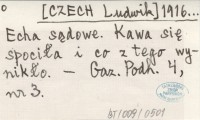 [CZECH Ludwik] 1916...
Echa sądowe. Kawa się
spociła i co z tego wy-
nikło. — Gaz. Podh. 4,
nr 3.
AT/009/0501